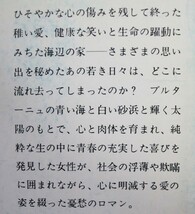 ひそやかな心の傷みを残して終った
稚い愛、健康な笑いと生命の躍動に
みちた海辺の家――さまざまの思い
出を秘めたあの若き日々は、どこに
流れ去ってしまったのか?　ブルタ
ーニュの青い海と白い砂浜と輝く太
陽のもとで、心と肉体を育まれ、純
粋な生の中に青春の充実した喜びを
発見した女性が、社会の浮薄や欺瞞
に囲まれながら、心に明滅する愛の
姿を綴った憂愁のロマン。